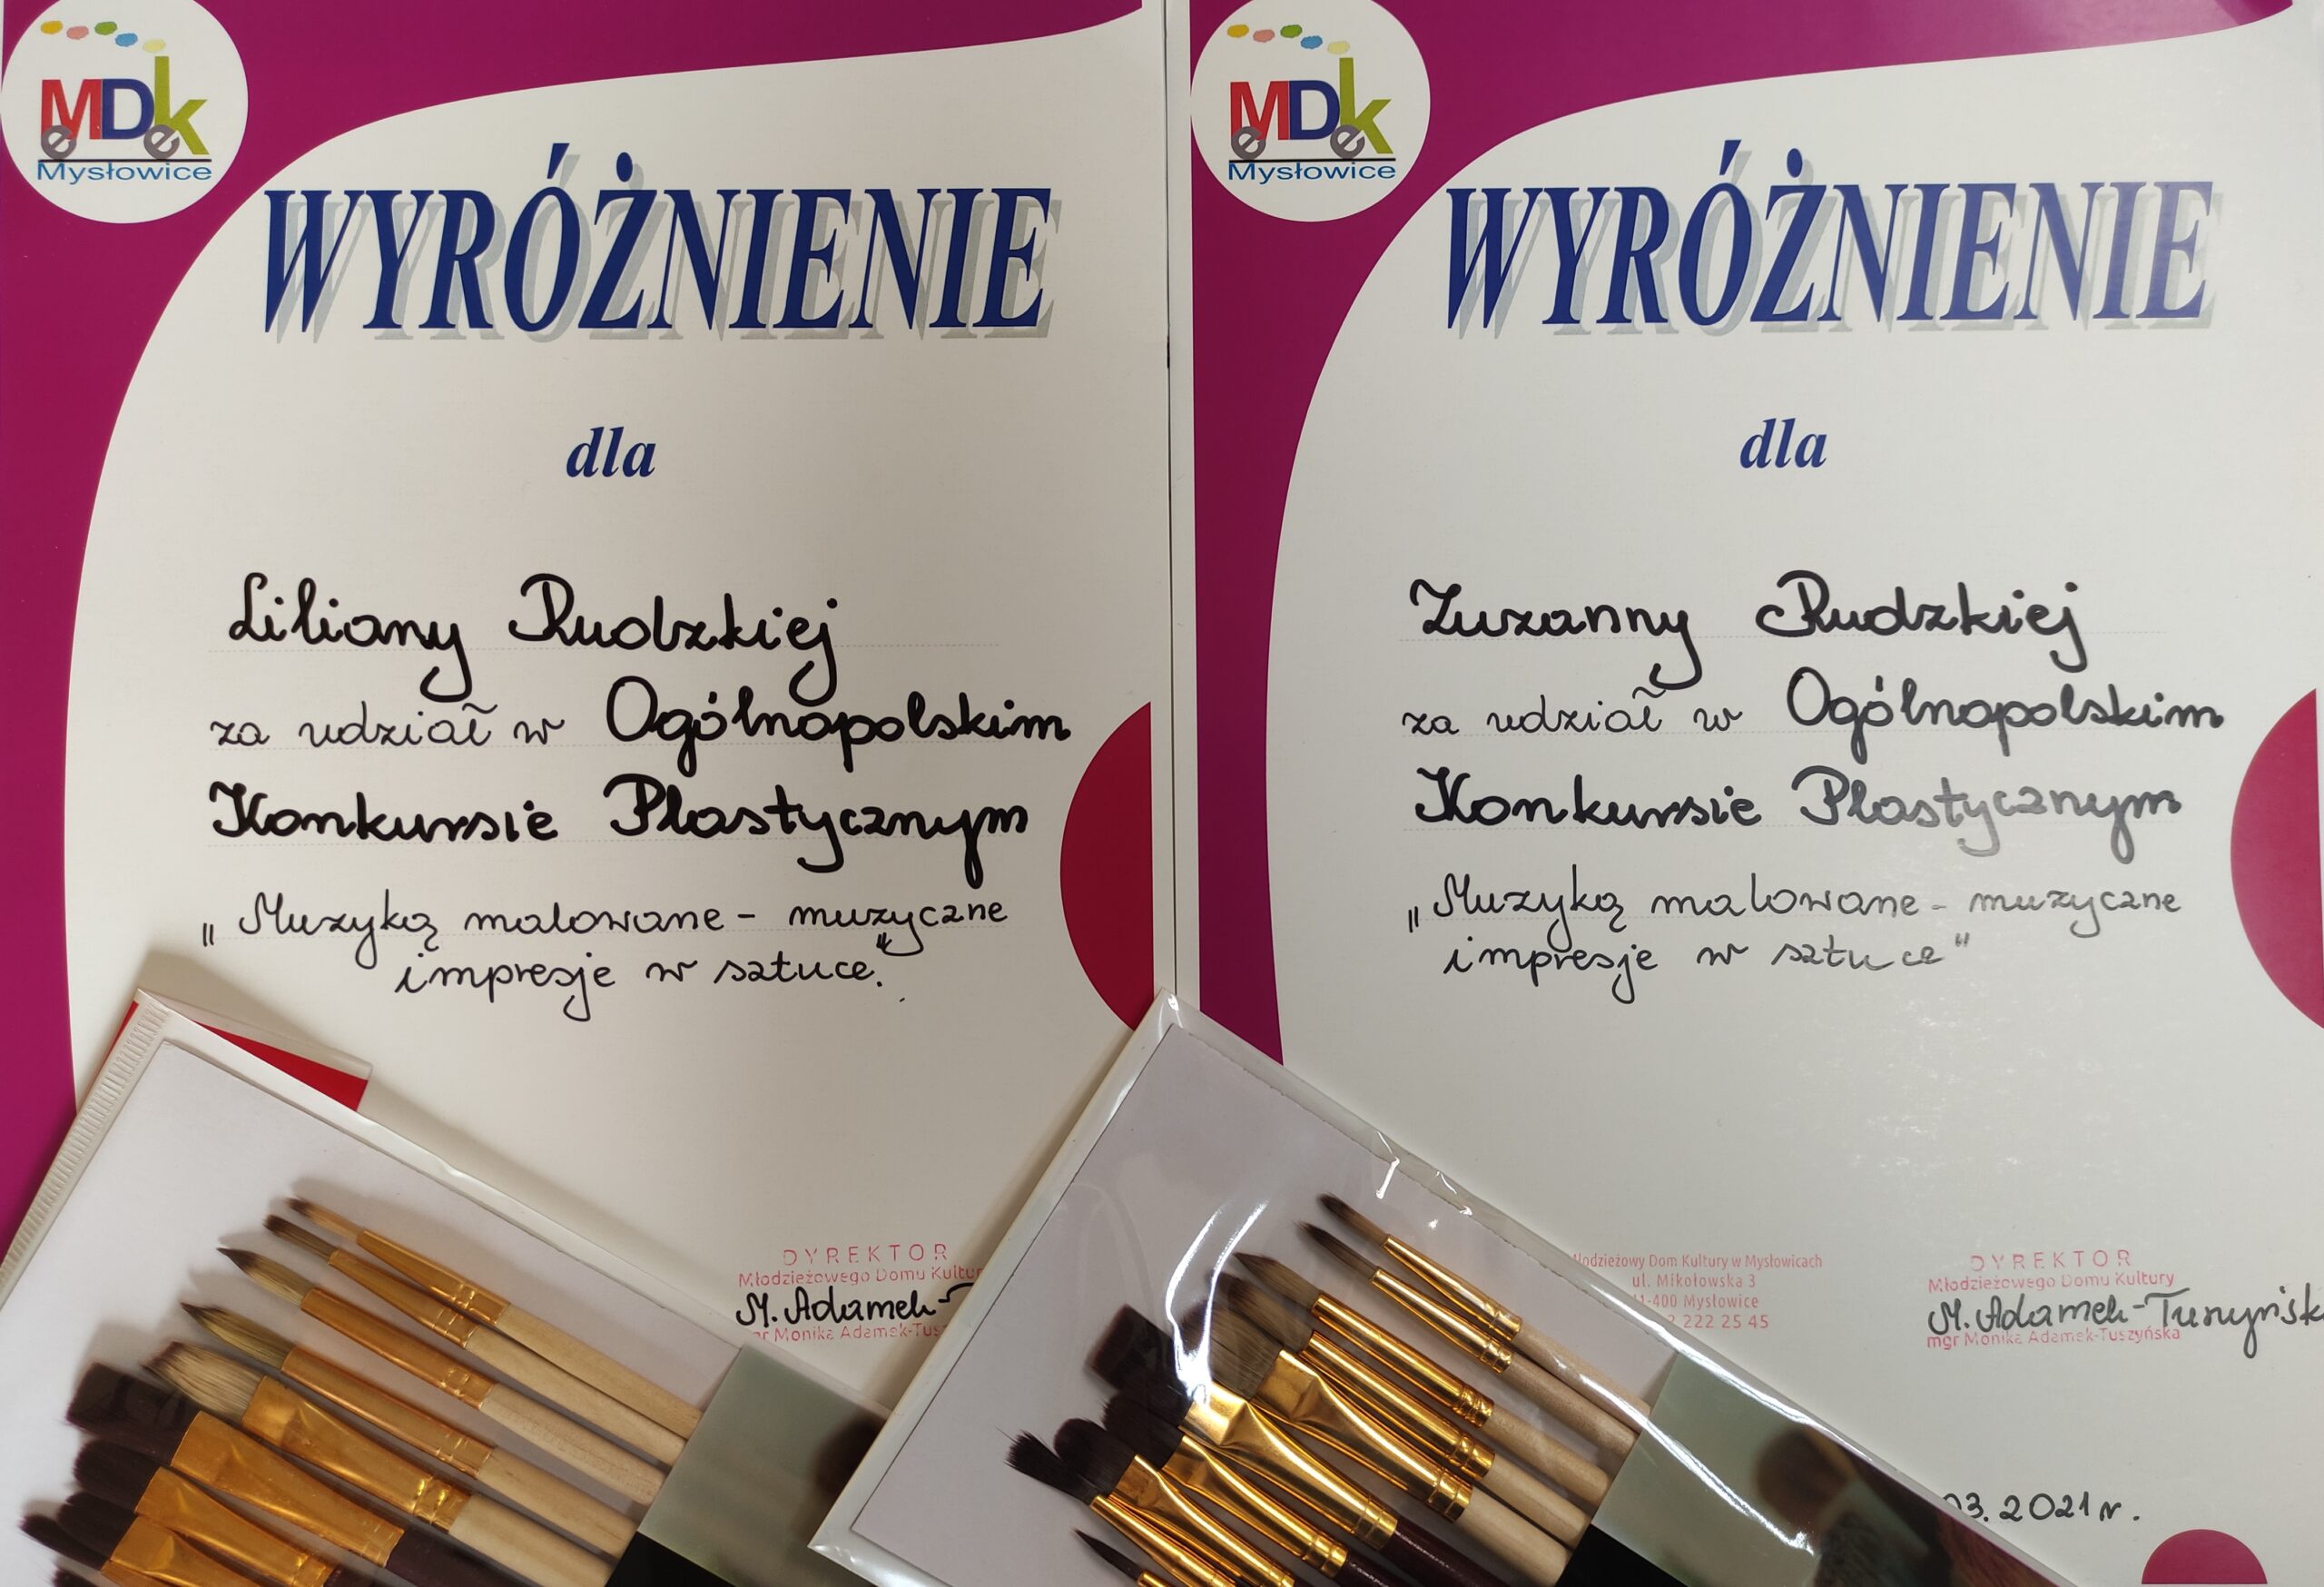 MDk
e e
Mysłowice
WYRÓŻNIENIE
dla
Liliany Rudzkiej
za udział w Ogólnopolskim
Konkursie Plastycznym
„Muzyką malowane - muzyczne
impresje w sztuce."
DYREKTOR
Młodzieżowego Domu Kultur
M. Adamek-
mgr Monika Adamek-Tusz
MDk
e e
Mysłowice
WYRÓŻNIENIE
dla
Zuzanny Rudzkiej
za udział w Ogólnopolskim
Konkursie Plastycznym
„Muzyką malowane - muzyczne
impresje w sztuce"
Młodzieżowy Dom Kultury w Mysłowicach
ul. Mikołowska 3
41-400 Mysłowice
222 25 45
DYREKTOR
Młodzieżowego Domu Kultury
M. Adamek-Tuszyńsk
mgr Monika Adamek-Tuszyńska
03.2021 r.